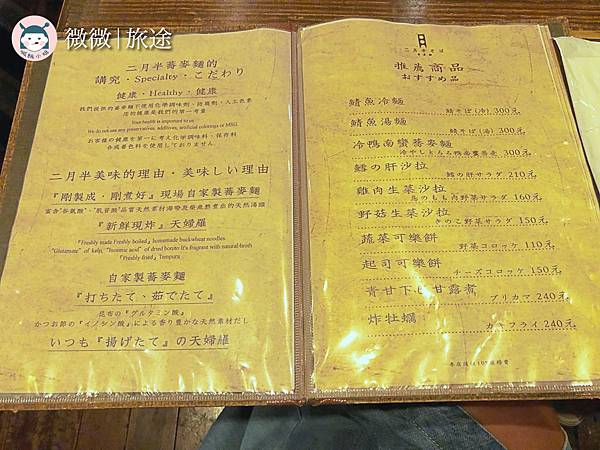 微微|旅途
二月半蕎麥麵的
講究・Specialty・こだわり
健康・Healthy・健康
我們提供的蕎麥麵不使用化學調味劑、防腐劑、人工色素
您的健康是我們的第一考量
Your health is important to us
We do not use any preservatives, additives, artificial colorings or MSG.
お客様の健康を第一に考え化学調味料、保存料
合成着色料を使用しておりません
二月半美味的理由・美味しい理由
『剛製成・剛煮好』現場自家製蕎麥麵
富含"谷氨酸"、"肌苷酸"品嘗天然素材海帶及柴魚熬煮出的天然湯頭
『新鮮現炸』天婦羅
『Freshly made Freshly boiled』homemade buckwheat noodles
"Glutamate" of kelp, "Inosinic acid" of dried bonito It's fragrant with natural-broth
『Freshly fried』Tempura
自家製蕎麥麵
『打ちたて、茹でたて』
昆布の『グルタミン酸』
かつお節の『イノシン酸』による香り豊かな天然素材だし
いつも『揚げたて』の天婦羅
二月半そば
推薦商品
おすすめ品
鯖魚冷麵
鯖そば(冷) 300元
鯖魚湯麵
鯖そば(湯) 300元
冷鴨南蠻蕎麥麵
鱈の肝沙拉
鱈の肝サラダ 210元
雞肉生菜沙拉
鳥のもも肉野菜サラダ 160元
野菇生菜沙拉
きのこ野菜サラダ 150元
蔬菜可樂餅
野菜コロッケ 110元
起司可樂餅
チーズコロッケ 150元
青甘下巴甘露煮
ブリカマ 240元
炸牡蠣
カキフライ 240元
本店酌收10%服務費